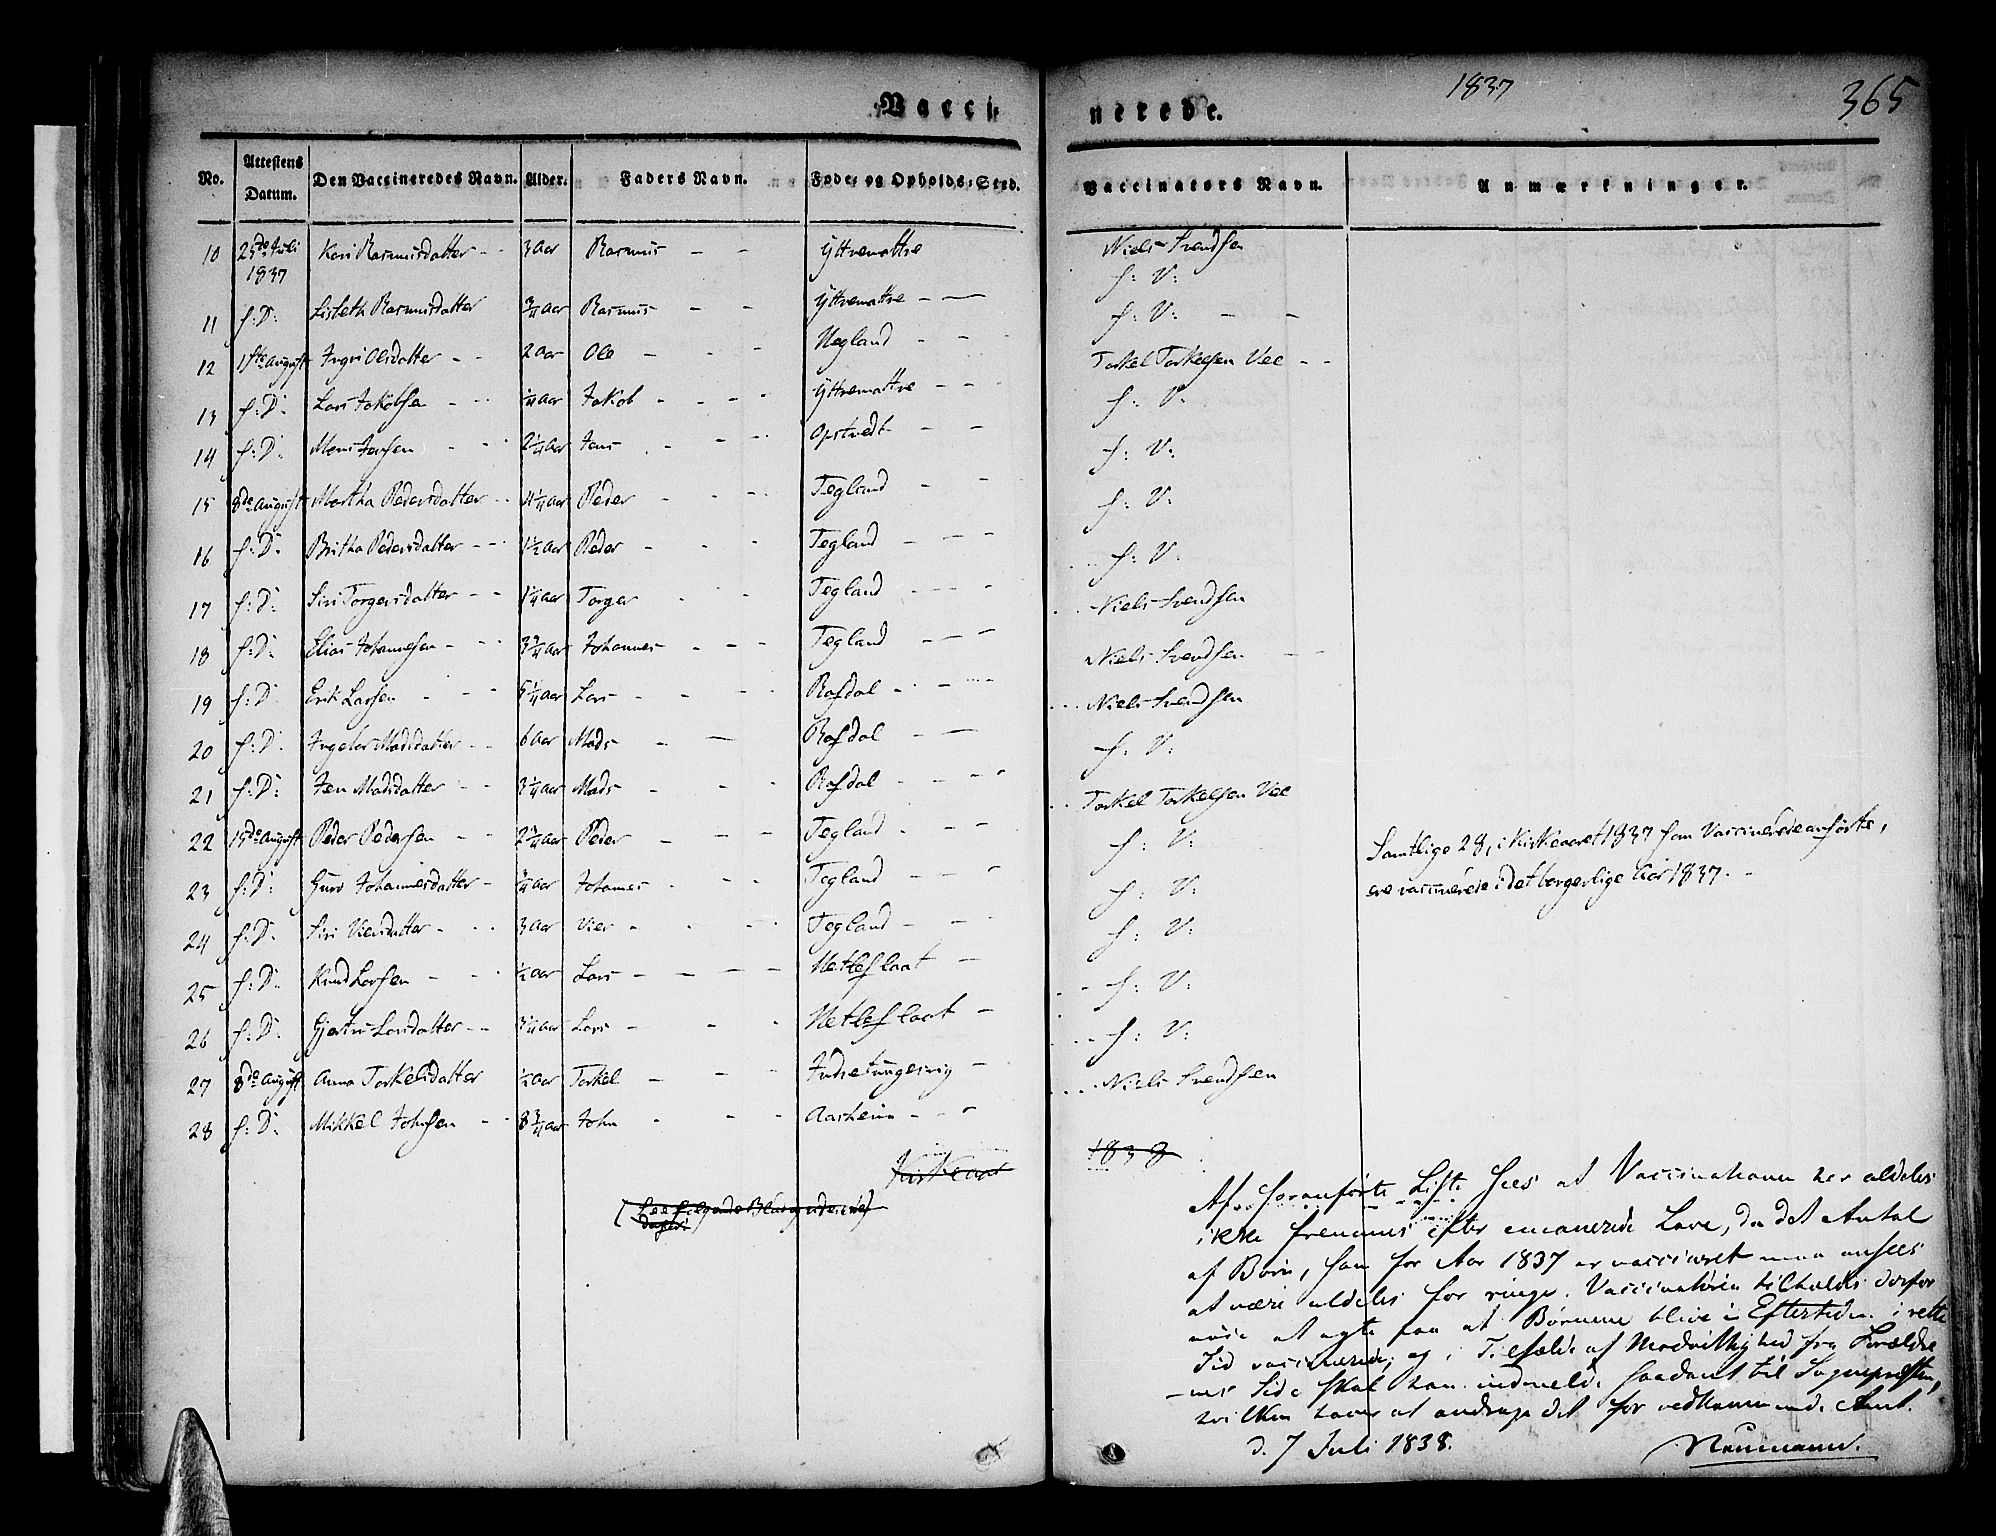 Vacci-nerede.
1837
365
No. Attestens Datum. Den Vaccineredes Navn. Alder. Faders Navn. Føde- og Opholds-Sted. Vaccinators Navn. Anmærkninger.
10 25de Juli 1837 Kari Rasmusdatter - - 3 Aar Rasmus - - Yttremattre Niels Svendsen
S: V:
11 S: D: Lisbeth Rasmusdatter 3/4 Aar Rasmus - - Yttrematre - - S: V: - -
12 1ste August Ingri Olsdatter - - 2 Aar Ole - - - Hegland - - Torkel Torkelsen Vee - -
13 S: D: Lars Jakobsen - - Aar Jakob - - - - Yttrematre - - - S: V:
14 S: D: Mons Jansen - - 2 1/4 Aar Jans - - - Opstvedt - - S: V:
15 8de August Martha Pedersdatter - - 4 1/4 Aar Peder - - - Tegland - - S: V:
16 S: D: Britha Pedersdatter - - 1 1/2 Aar Peder - - - Tegland - - - S: V:
17 S: D: Siri Torgersdatter - - 1 1/4 Aar Torger - - Tegland - - - Niels Svendsen
18 S: D: Elias Johannesen - - - 3 3/4 Aar Johannes - - - Tegland - - - Niels Svendsen - -
19 S: D: Erik Larsen - - - 5 1/4 Aar Lars - - - Rafdal - - - Niels Svendsen
20 S: D: Madsdatter - - 6 Aar Mads - - Rafdal - - S: V:
21 S: D: Madsdatter - - 3 1/4 Aar Mads - - Rafdal - - - - Torkel Torkelsen Vee
22 15de August Peder Pedersen - - 2 3/4 Aar Peder - - - Tegland - - - S: V:
23 S: D: Guro Johannesdatter - 3/4 Aar Johannes - - - Tegland - - - S: V:
24 S: D: Siri Viersdatter - - - 3 Aar Vier - - - - Tegland - - - S: V:
25 S: D: Knud Larsen - - - 1/2 Aar Lars - - - - Netleflaat - S: V:
26 S: D: Gjertru Larsdatter - - 3 1/4 Aar Lars - - - Netleflaat - S: V:
27 8de August Anna Torkelsdatter 1/2 Aar Torkel - - - Indretungesvig - Niels Svendsen
28 S: D: Mikkel Johnsen - - 8 3/4 Aar John - - - Aarheim - - -
Samtlige 28, i Kirkeaaret 1837 som Vaccinerede anførte,
ere vaccinerede i det borgerlige Aar 1837. -
Kirkeaar 1838
Af foranførte Liste sees at Vaccinationen her aldeles
ikke fremmes efter emanerede Love, da det Antal
af Børn, som for Aar 1837 er vaccineret maa ansees
at være aldeles for ringe. Vaccinatøren tilholdes derfor
nøie at agte paa at Børnene blive i Eftertiden i rette
Tid vaccinerede, og i Tilfælde af Modvillighed fra Forældre
-nes Side skal han indmelde saadant til Sognepresten,
hvilken haver at andrage det for vedkommende Amt.
d. 7 Juli 1838.
Neumann.